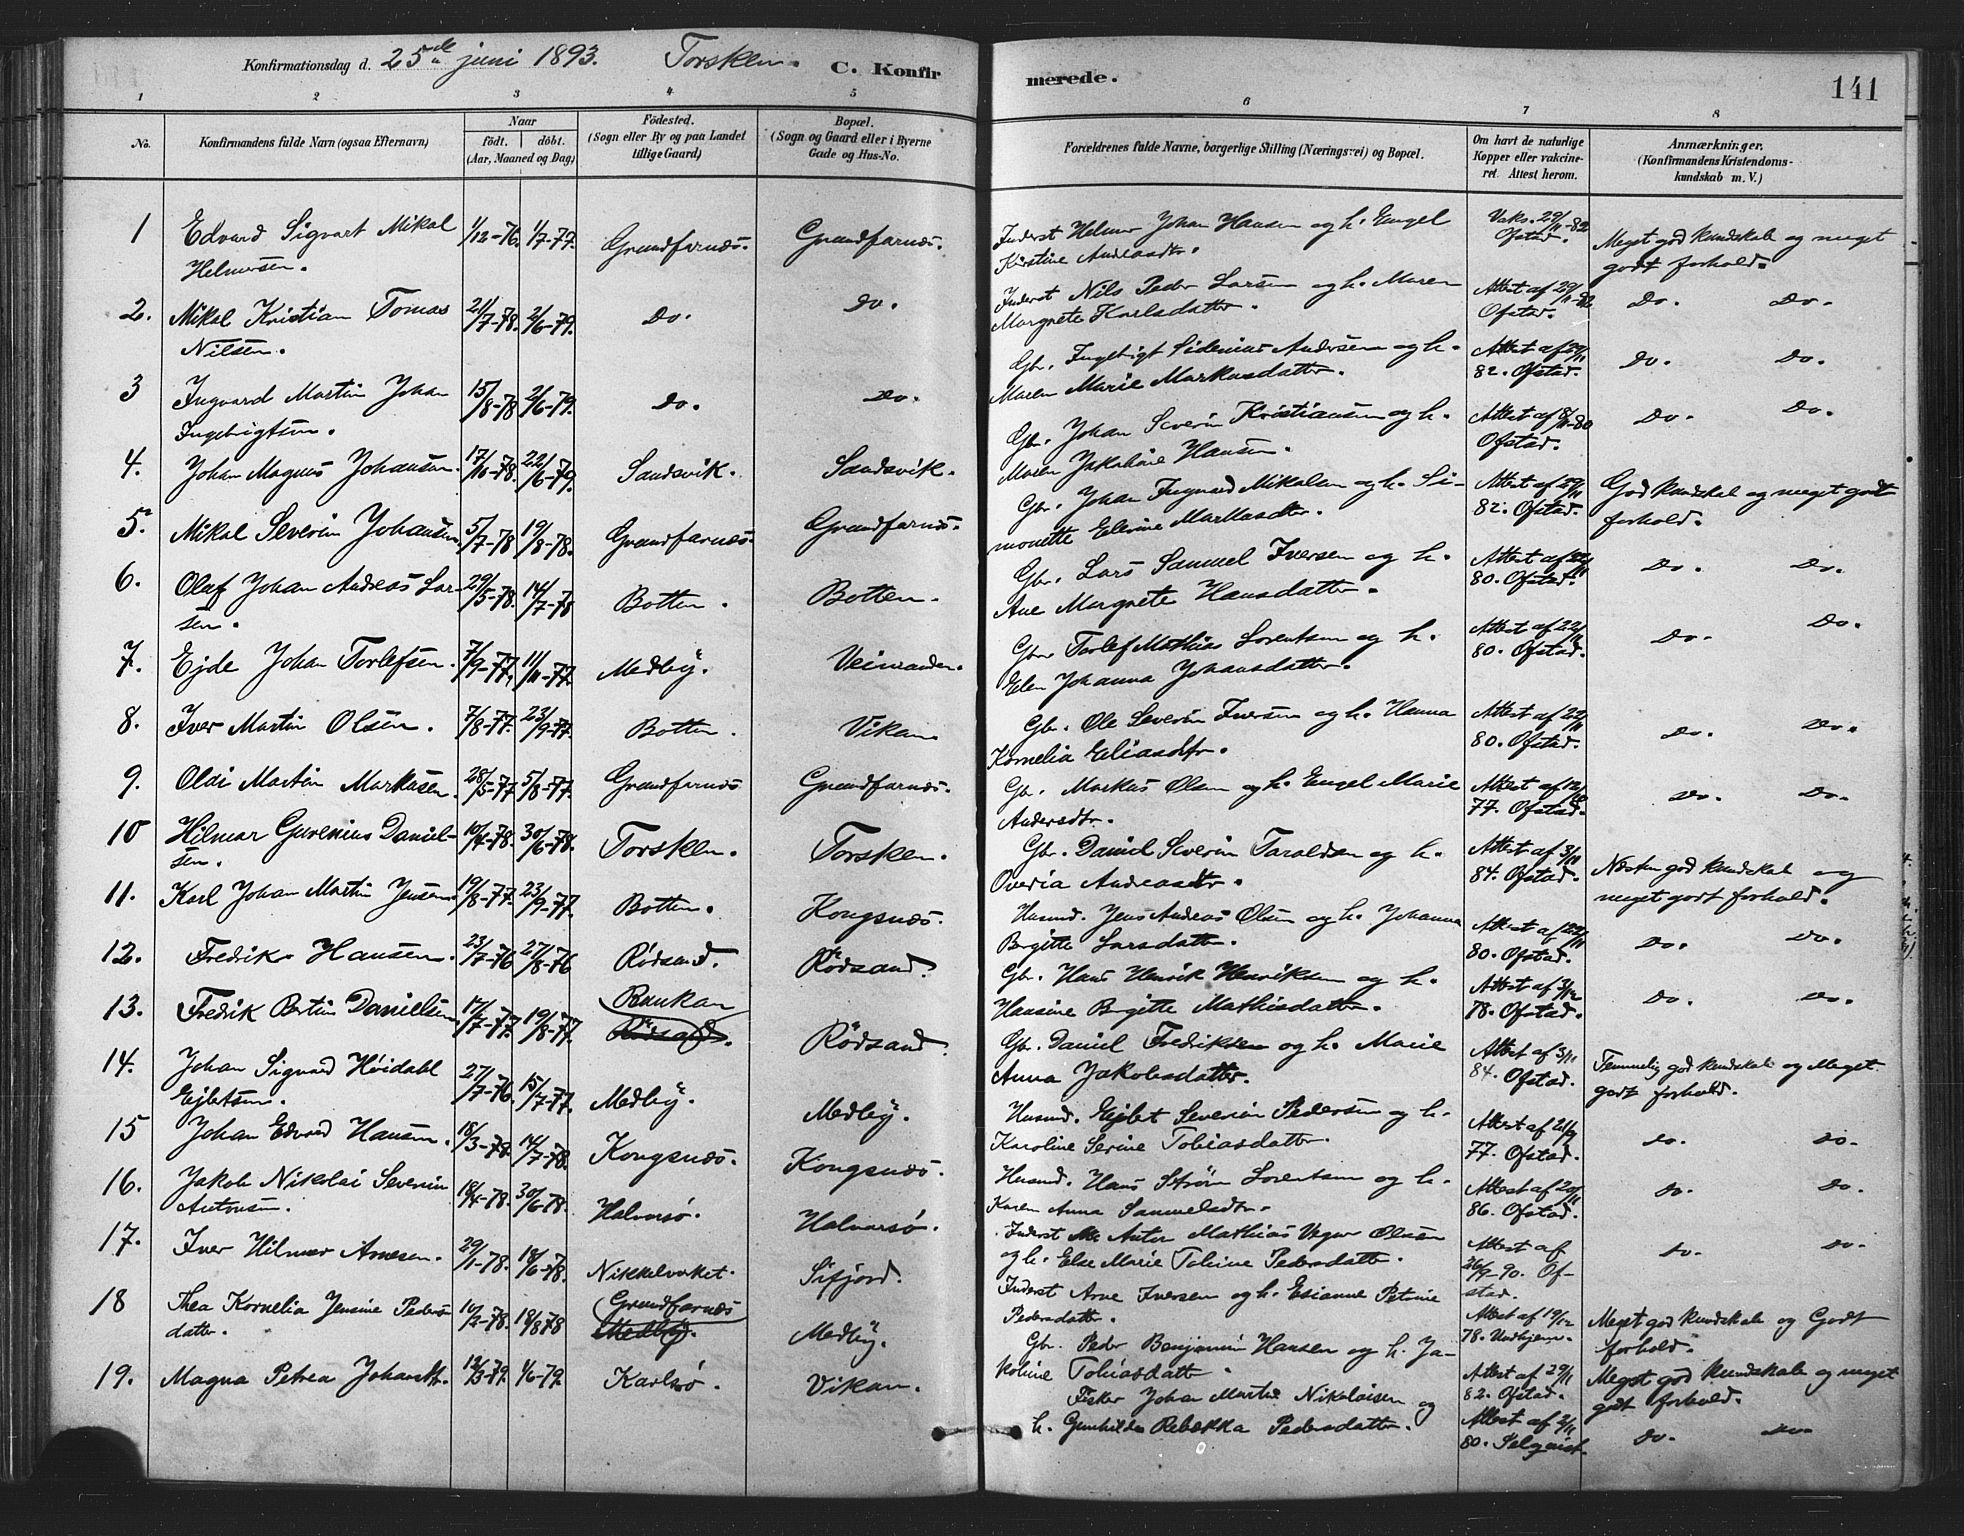 Konfirmationsdag d. 25de juni 1893. Torsken. C. Konfirmerede. 141
1 2 3 4 5 6 7 8
No.
Konfirmandens fulde Navn (ogsaa Efternavn)
Naar
födt. döbt.
(Aar, Maaned og Dag)
Födested.
(Sogn eller By og paa Landet
tillige Gaard)
Bopæl.
(Sogn og Gaard eller i Byerne
Gade og Hus-No.
Forældrenes fulde Navne, borgerlige Stilling (Næringsvei) og Bopæl.
Om havt de naturlige
Kopper eller vakcine-
ret. Attest herom.
Anmærkninger.
(Konfirmandens Kristendoms-
kundskab m. V.)
1 Edvard Sigvart Mikal Helmersen. 1/12-76. 1/7-77. Grundfarnes. Grundfarnes. Inderst Helmer Johan Hansen og h. Engel Kirstine Andreasdtr. Vaks. 29/11-82 Ofstad. Meget god kundskab og meget godt forhold.
2. Mikal Kristian Tomas Nilsen. 21/7-78. 2/6-79. Do. Do. Inderst Nils Peder Larsen og h. Maren Margrete Karlsdatter. Attest af 29/11-82 Ofstad. Do. Do.
3 Ingvard Martin Johan Ingebrigtsen. 15/8-78 2/6-79. Do. Do. Gbr. Ingebrigt Sidenius Andersen og h. Maren Marie Markusdatter. Attest af 29/11 82. Ofstad. Do. Do.
4. Johan Magnus Johansen. 17/10-78. 22/6-79. Sandsvik. Sandsvik. Gbr. Johan Severin Kristiansen og h. Maren Jakobine Hansen. Attest af 8/11-80 Ofstad. Do. Do.
5. Mikal Severin Johansen 5/7-78 19/8-78. Grundfarnes. Grundfarnes. Gbr. Johan Ingvard Mikalsen og h. Simonette Elerine Markusdtr. Attest af 29/11 82. Ofstad. God kundskab og meget godt forhold.
6. Olaf Johan Andreas Larsen. 29/5-78. 14/7-78 Botten. Botten. Gbr. Lars Samuel Iversen og h. Ane Margrete Hansdatter. Attest af 22/11 80. Ofstad. Do. Do.
7. Ejde Johan Torlefsen. 7/9-77. 11/11-77. Medby. Gbr Torlef Mathias Lorentsen og h. Elen Johanna Johansdatter. Attest af 22/11 80. Ofstad. Do. Do.
8. Iver Martin Olsen. 7/8-77. 23/9-77. Botten. Vikan. Gbr. Ole Severin Iversen og h. Hanna Kornelia Eliasdtr. Attest af 22/11 80. Ofstad. Do. Do.
9. Oldi Martin Markusen. 28/5-77 5/8-77. Grundfarnes Grundfarnes. Gbr. Markus Olsen og h. Engel Marie Andersdtr. Attest af 12/12 77. Ofstad. Do. Do.
10 Hilmar Gurenius Danielsen. 10/4-78. 30/6-78. Torsken. Torsken. Gbr. Daniel Severin Taraldsen og h. Overia Andreasdtr. Attest af 3/11 84. Ofstad. Næsten god kundskab og meget godt forhold.
11. Karl Johan Martin Jensen. 19/8-77. 23/9-77. Botten. Kongsnes. Husmd. Jens Andreas Olsen og h. Johanna Bergitte Larsdatter. Attest af 22/11 80. Ofstad. Do. Do.
12. Fredrik Hansen. 23/7-76 27/8-76 Rödsand. Rödsand. Gbr. Hans Henrik Henriksen og h. Hansine Bergitte Mathisdatter. Attest af 3/12 78. Ofstad. Do. Do.
13. Fredrik Bertin Danielsen 17/7-77. 19/8-77. Raukan Rödsand. Rödsand. Gbr. Daniel Fredriksen og h. Marie Anna Jakobsdatter. Attest af 3/11 84. Ofstad. Temmelig god kundskab og Meget godt forhold.
14. Johan Sigvard Høidahl Ejletsen. 27/7-76. 15/7-77. Medby. Medby. Husmd. Ejlet Severin Pedersen og h. Karoline Serine Tobiasdatter. Attest af 21/9 77. Ofstad. do. do.
15 Johan Edvard Hansen. 18/3-78. 14/7-78. Kongsnes. Kongsnes. Husmd. Hans Strøm Lorentsen og h. Karen Anna Samuelsdtr. Attest af 20/11 86. Ofstad. do. Do.
16. Jakob Nikolai Severin Antonsen. 18/4-78. 30/6-78. Halvarsö. Halvarsö. Inderst Anton Mathias Olsen og h. Else Marie Tobine Pedersdatter. Attest af 26/9-90. Ofstad. do. do.
17. Iver Hilmar Arnesen. 29/1-78. 18/6-78. Nikkelverket. Sifjord. Inderst Arne Iversen og h. Esianne Petrine Pedersdatter. Attest af 19/12 78. Meget god kundskab og Godt forhold.
18 Thea Kornelia Jensine Pedersdatter. 10/2-78. 18/8 78 Grundfarnes Medby. Medby. Gbr. Peder Benjamin Hansen og h. Jakobine Tobiasdatter. Attest af 29/11 82. Ofstad. Meget god kundskab og meget godt forhold.
19. Magna Petrea Johansdtr. 12/3-79. 1/6-79. Karlsø. Vikan. Fisker Johan Martin Nikolaisen og h. Gunhilda Rebekka Pedersdatter. Attest af 2/11 80. Selqvist. Do. Do.